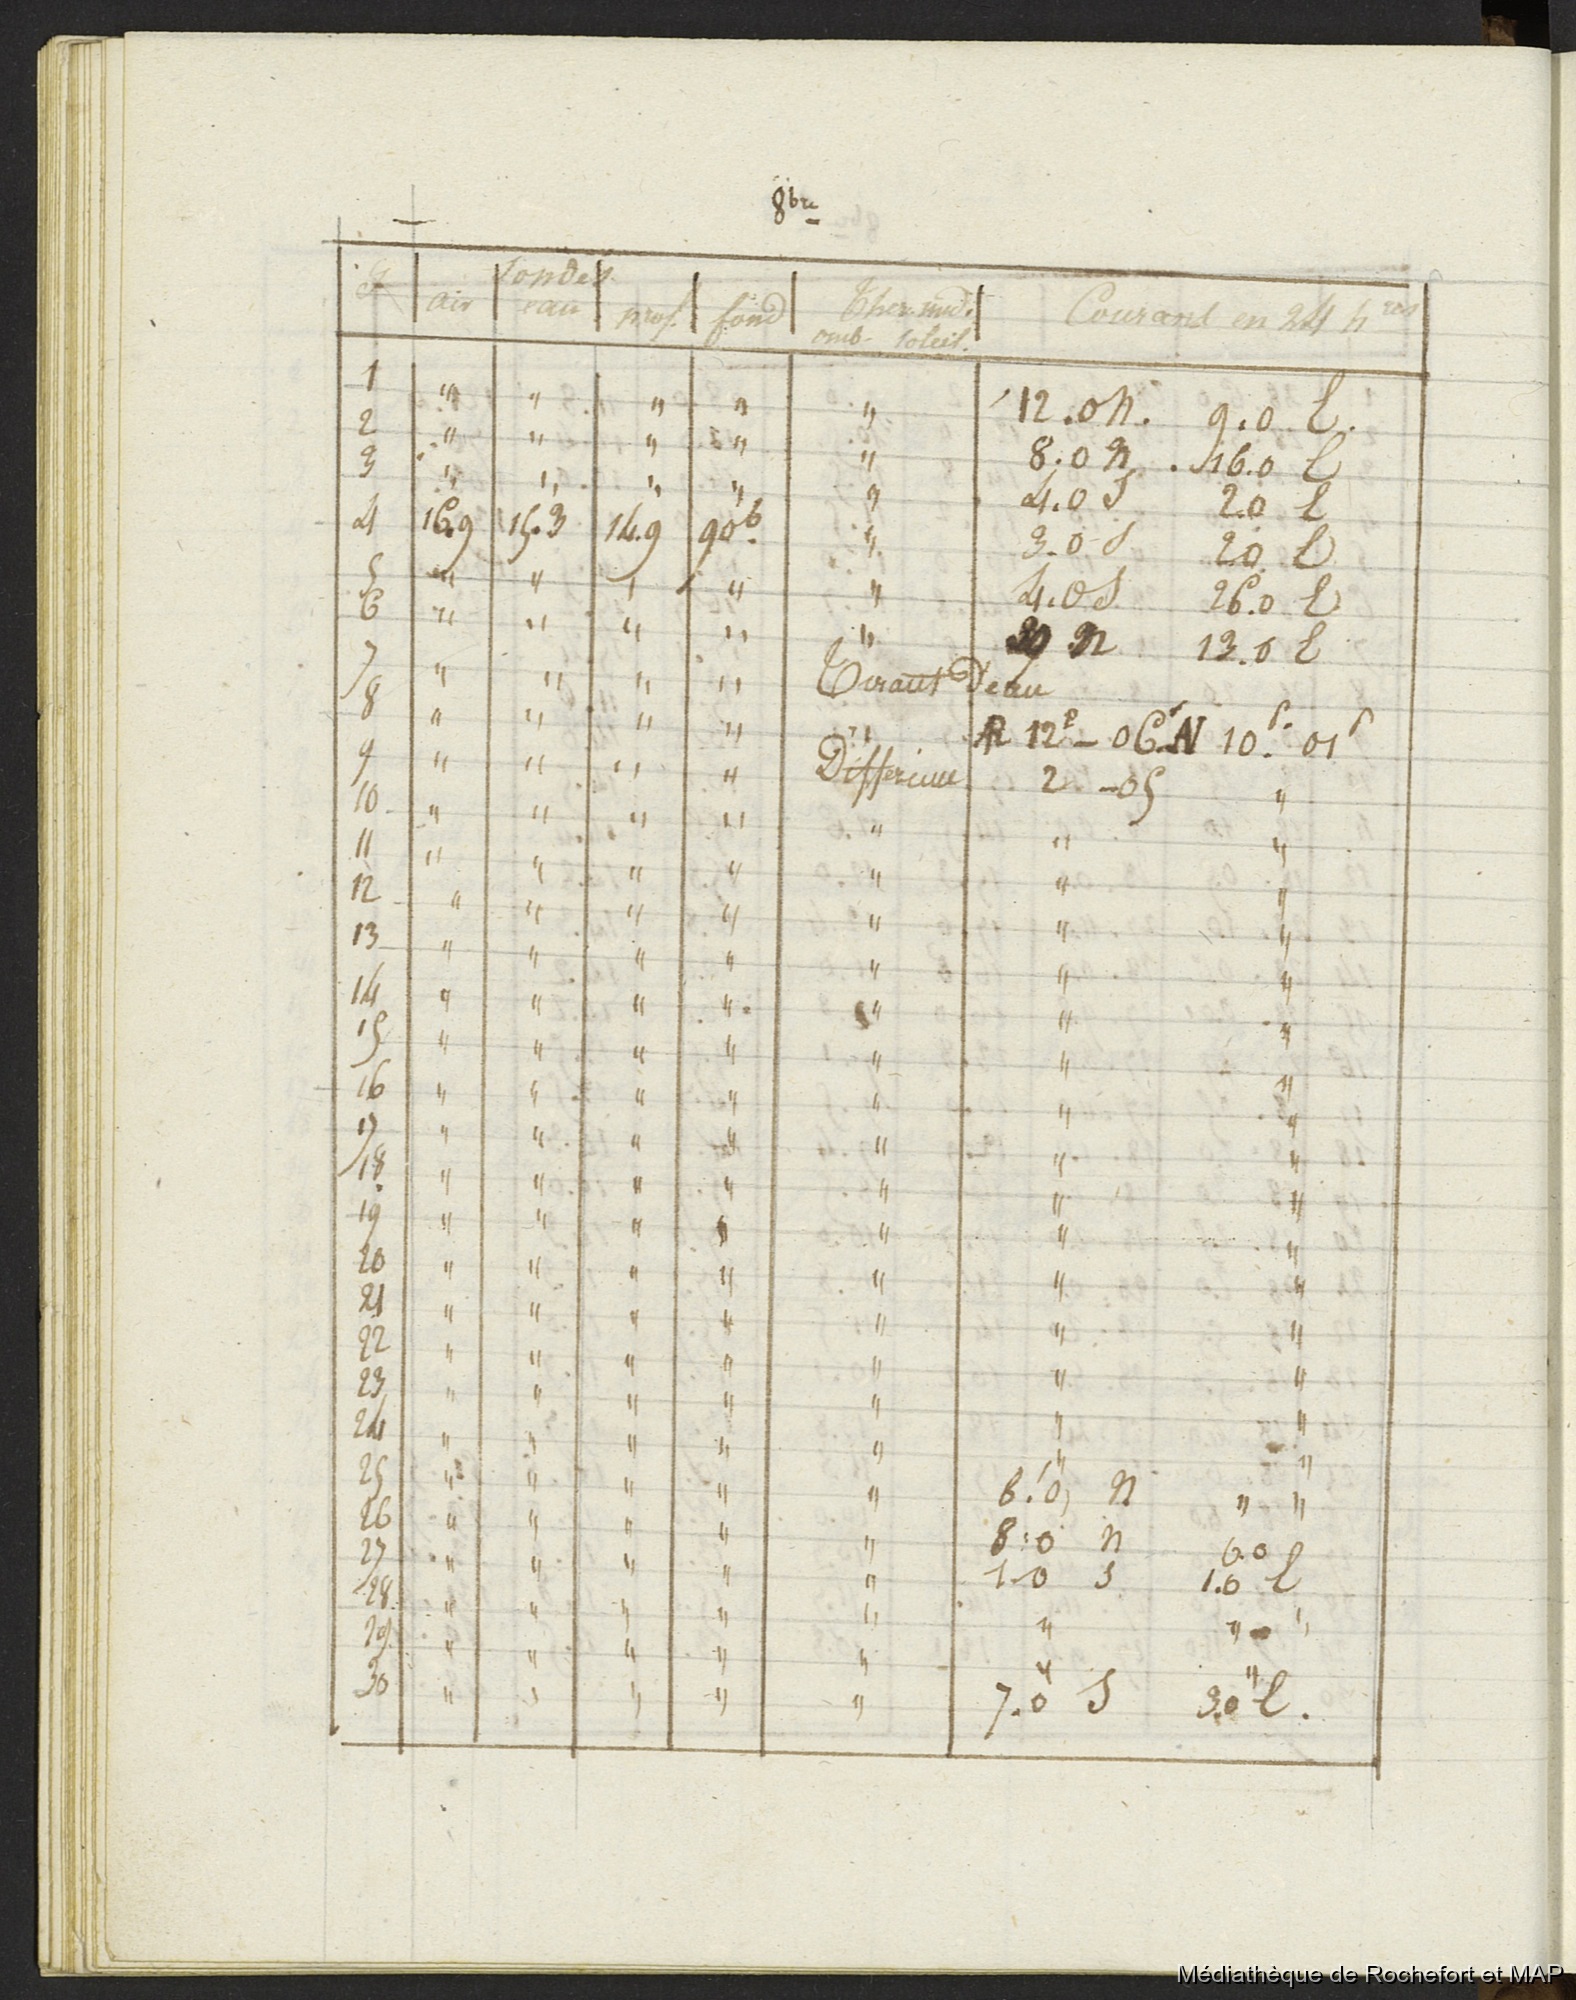 8bre
J Sondes Ther. mid. Courant en 24 hres
air eau prof. fond omb- soleil.
1 " " " " " 12.0 N. 9.0 E.
2 " " " " " 8.0 N 16.0 E
3 " " " " " 4.0 S 2.0 E
4 16.9 15.3 14.9 90b. " 3.0 S 20 E
5 " " " " " 4.0 S 26.0 E
6 " " " " " N 13.0 E
7 " " " " Tirant D'eau
8 " " " " " R 12P - 06 N 10P. 01P
9 " " " " Differince 2 - 05 "
10 " " " " " " "
11 " " " " " " "
12 " " " " " " "
13 " " " " " " "
14 " " " " " " "
15 " " " " " " "
16 " " " " " " "
17 " " " " " " "
18 " " " " " " "
19 " " " " " " "
20 " " " " " " "
21 " " " " " " "
22 " " " " " " "
23 " " " " " " "
24 " " " " " " "
25 " " " " " 6.0 N " "
26 " " " " " 8.0 N 6.0
27 " " " " " 1.0 S 1.0 E
28 " " " " " " " "
29 " " " " " " "
30 " " " " " 7.0 S 3.0 E.
Médiathèque de Rochefort et MAP